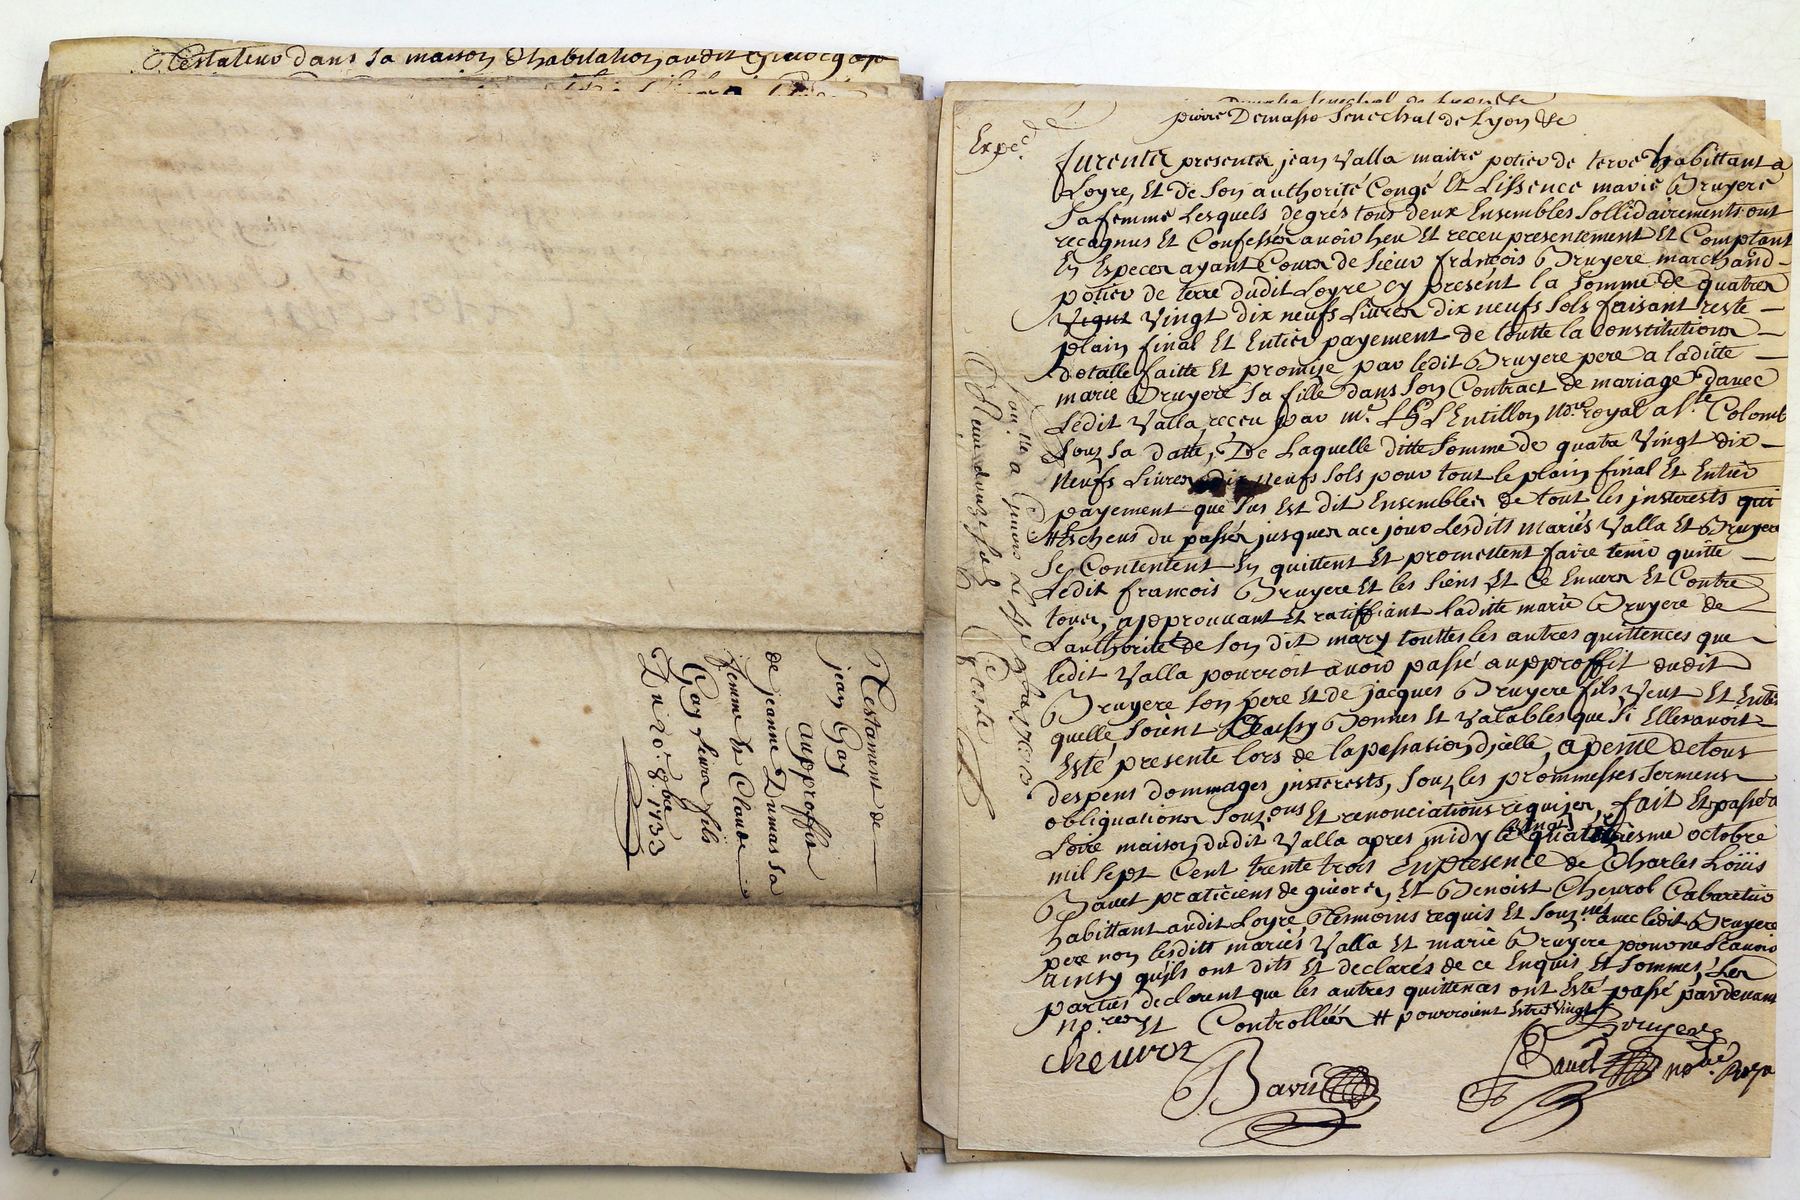 testateur dans sa maison d'habitation audit
Testament de
jean Gay
auproffit
de jeanne Dumas sa
femme & Claude
Gay leur fils
Du 20e. 8bre 1733
pierre Demasso Senechal de Lyon &c
Exped.
furente presente jean Valla maitre potier de terre habittant a
Loyre, Et de son authorité Congé Et Lissence marie Bruyere
Sa femme Lesquels de grés tous deux Ensembles Sollidairements ont
recognus Et Confessés avoir heu Et receu presentement Et Comptant
En Especes ayant Cours de Sieur françois Bruyere marchand
potier de terre dudit Loyre cy présent la Somme de quatre
Vignt Vingt dix neufs Livres dix neufs Sols faisant reste
plain final Et Entier payement de toutte la Constitution
dotalle faitte Et promise par ledit Bruyere pere a laditte
marie Bruyere Sa fille dans Son Contract de mariage d'avec
Ledit Valla, receu par me. L'Entillon Nore royal a Ste Colombe
Souz Sa datte, De Laquelle ditte Somme de quatre Vingt dix
Neufs Livres dix neufs Sols pour tout le plain final Et Entier
payement que Sus Est dit Ensembles de tout les insterests qui
# Escheus du passés jusques a ce jour Lesdits mariés Valla Et Bruyere
Se Contentent En quittent Et promettent faire tenir quitte
Ledit francois Bruyere Et les Siens Et Ce Envers Et Contre
tous, approuvant Et ratiffiant Laditte marie Bruyere de
L'authorité de Son dit mary touttes les autres quittences que
ledit Valla pourroit avoir passé auproffit dudit
Bruyere Son pere Et de jacques Bruyere fils Veut Et Entend
quelle Soient Aussy Bonnes Et Valables que Si Elle avoit
Esté presente Lors de la passasion d'icelle, a peine de tous
despens dommages insterests, Souz les prommesses Sermens
obliguations Soumions Et renonciations requises, fait Et passé a
Loire maison dudit Valla apres midy le Vingt quatriesme octobre
mil Sept Cent trente trois En presence de Charles Loüis
Bavet praticiens de givors, Et Benoist Chevrol Cabaretier
habittant audit Loyre Tesmoins requis Et Souznés avec ledit Bruyere
pere non lesdits mariés Valla Et marie Bruyere pour ne Scavoir
ainsy quils ont dits Et declarés de ce Enquis Et Sommes, Les
parties declarent que les autres quittences ont Esté passé pardevant
nores Et Controllées # pourroient Estre Vingt
Bruyere
Chevrot
Bavet
Bavet nore Royal